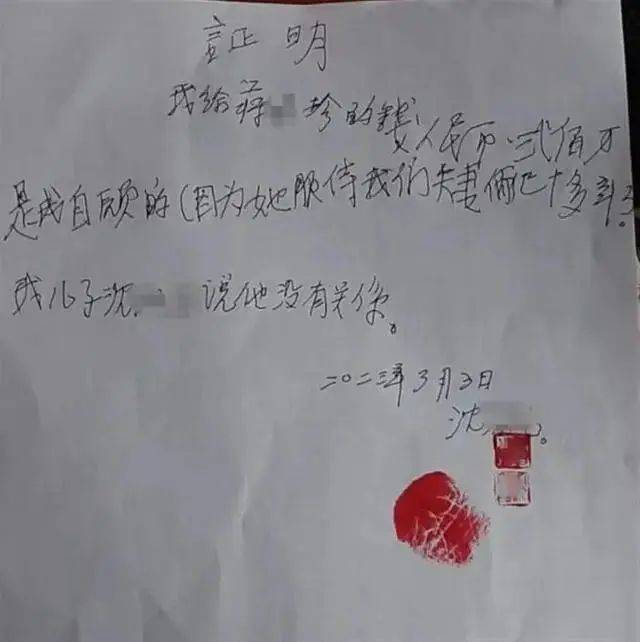 証明
我给蒋珍的钱人民币、弍佰万
是我自愿的(因为她服侍我们夫妻俩已十多年了。
我儿子沈说他没有关係。
二〇二三年3月3日
沈。